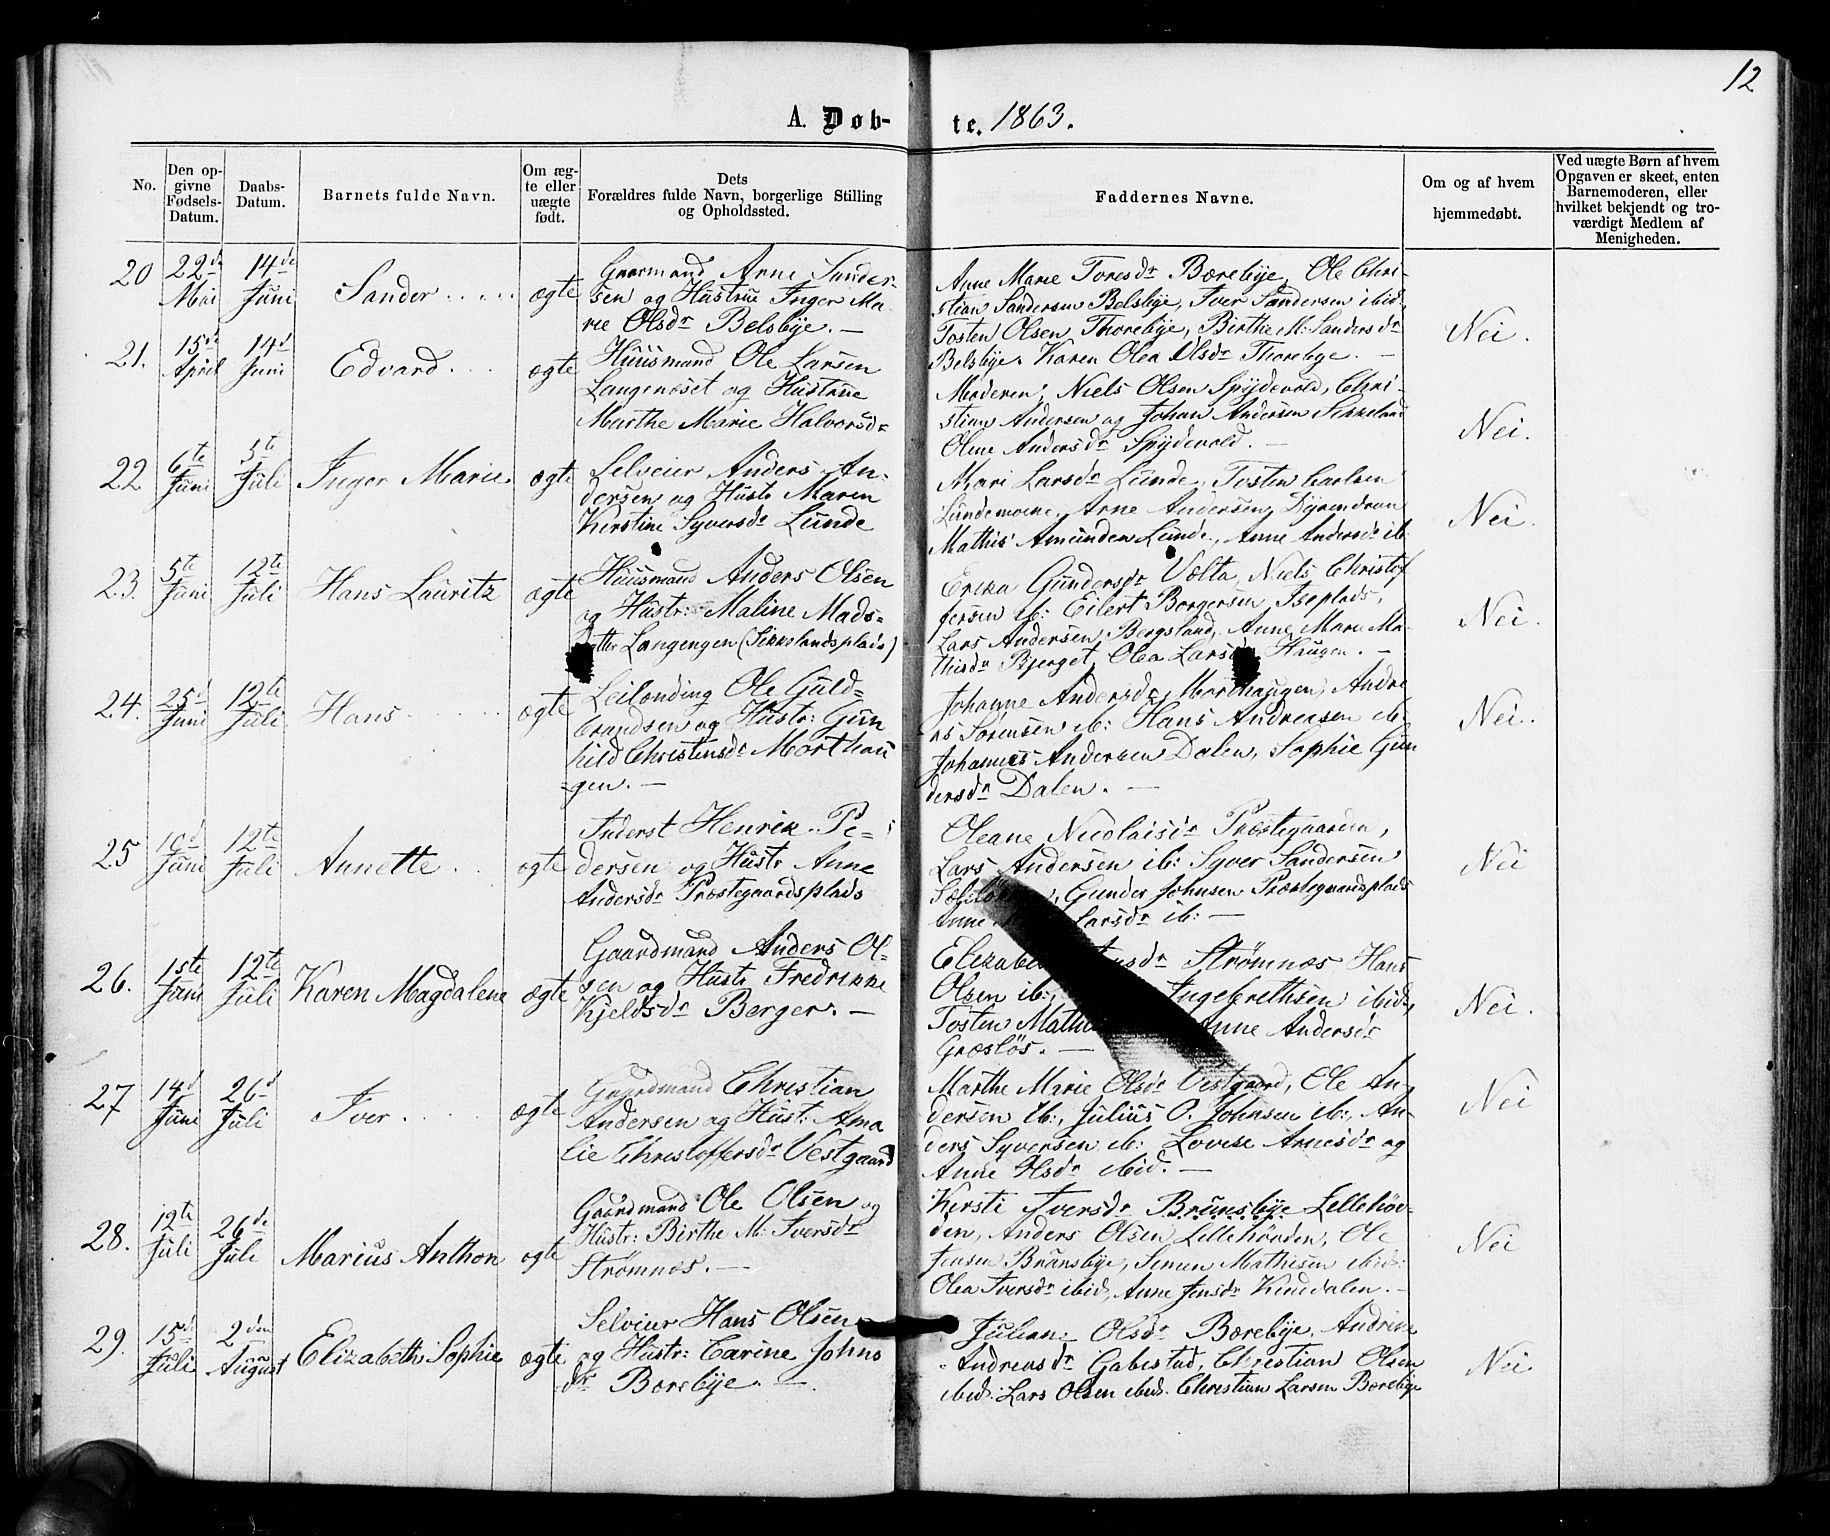 12
A. Døb- te. 1863.
No.
Den op-
givne
Fødsels-
Datum.
Daabs-
Datum.
Barnets fulde Navn.
Om æg-
te eller
uægte
født.
Dets
Forældres fulde Navn, borgerlige Stilling
og Opholdssted.
Faddernes Navne.
Om og af hvem
hjemmedøbt.
Ved uægte Børn af hvem
Opgaven er skeet, enten
Barnemoderen, eller
hvilket bekjendt og tro-
værdigt Medlem af
Menigheden.
20
22de
Mai
14de
Juni
Sander
ægte
Gaarmand Arne Sander-
sen og Hustrue Inger Ma-
rie Olsdr Belsbye. —
Anne Marie Toresdr Bærebye, Ole Chri-
stian Sandersen Belsbye, Iver Sandersen ibid,
Tosten Olsen Thorebye, Birthe M: Sandersdr
Belsbye. Karen Olea Olsdr Thorebye. —
Nei.
21.
15de
April
14d
Juni
Edvard
ægte
Huusmand Ole Larsen
Langenæset og Hustrue
Marthe Marie Halvorsd=
Moderen, Niels Olsen Spydevold, Chri-
stian Andersen og Johan Andersen Sikkeland
Oline Andersdr Spydevold. —
Nei.
22
6te
Juni
5te
Juli
Inger Marie
ægte
Selveier Anders An-
dersen og Hustr Maren
Kirstine Syversdr Lunde
Mari Larsdr Lunde, Tosten Carlsen
Lundemoene, Arne Andersen,
Mathis Amundsen Lunde, Anne Andersdr ib
Nei.
23.
5te
Juni
12te
Juli
Hans Lauritz
ægte
Huusmand Anders Olsen
og Hustr: Maline Mads=
datter Langengen (Sikkelandsplads)
Erika Gundersdr Vælta, Niels Christof
fersen ib: Eilert Borgersen,
Lars Andersen Bergsland, Anne Marie Ma-
thisdr Bjerget, Olea Larsdr Haugen. —
Nei.
24.
25d
Juni
12te
Juli
Hans
ægte
Leilending Ole Guld=
brandsen og Hustr: Gun
hild Christensdr Morthau
gen. —
Johanne Andersdr Morthaugen, Andre
as Sørensen ib: Hans Andreasen ib:
Johannes Andersen Dalen, Sophie Gun
dersdr Dalen. —
Nei.
25
10d
Juni
12te
Juli
Annette
ægte
Inderst Henrik Pe-
dersen og Hustr Anne
Andersdr Præstegaardsplads
Oleane Nicolaisdr Præstegaarden,
Lars Andersen ib: Syver Sandersen
Gunder Johnsen Præstegaardsplads
Anne Larsdr ib: —
Nei
26.
1ste
Juni
12te
Juli
Karen Magdalene
ægte
Gaardmand Anders Ol-
sen og Hustr Fredrikke
Kjeldsdr Berger. —
Strømnæs, Hans
Olsen ib:, Ingebrethsen ibid,
Tosten Anne Andersdr
Græsløs. —
Nei.
27
14d
Juni
26d
Juli
Iver
ægte
Gaardmand Christian
Andersen og Hustr: Ama
lie Christoffersdr Vestgaard
Marthe Marie Olsdr Vestgaard, Ole An
dersen ib:, Julius O. Johnsen ib:, An
ders Syversen ib: Lovise Arnesdr og
Anne Olsdr ibid. —
Nei
28.
12te
Juli
26de
Juli
Marius Anthon
ægte
Gaardmand Ole Olsen og
Hustr: Birthe M: Iversdr
Strømnæs. —
Kirsti Iversdr Brunsbye Lillehøv-
den, Anders Olsen Lillehövden, Ole
Jensen Brunsbye, Simen Mathisen ibid:
Olea Iversdr ibid, Anne Jensdr Kinndalen. —
Nei
29.
15d
Juli
2den
August
Elizabeth Sophie
ægte
Selveier Hans Olsen
og Hustr: Carine Johns
dr Børebye. —
Juliane Olsdr Børebye, Andrine
Andreasdr Gabestad, Christian Olsen
ibid: Lars Olsen ibid. Christian Larsen Børebye
Nei